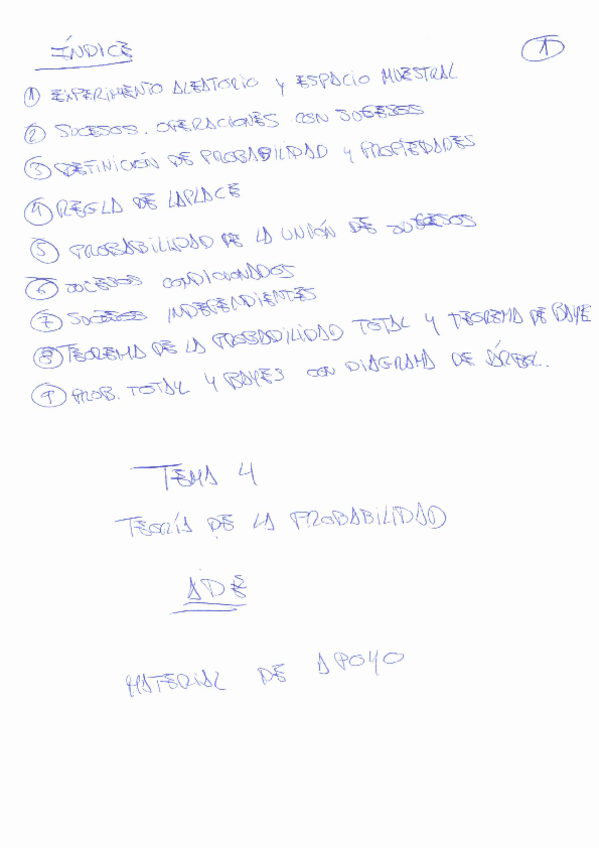 ÍNDICE
1
1 EXPERIMENTO ALEATORIO Y ESPACIO MUESTRAL
2 SUCESOS. OPERACIONES CON SUCESOS
3 DEFINICIÓN DE PROBABILIDAD Y PROPIEDADES
4 REGLA DE LAPLACE
5 PROBABILIDAD DE LA UNIÓN DE SUCESOS
6 SUCESOS CONDICIONADOS
7 SUCESOS INDEPENDIENTES
8 TEOREMA DE LA PROBABILIDAD TOTAL Y TEOREMA DE BAYE
9 PROB. TOTAL Y BAYES CON DIAGRAMA DE ÁRBOL.
TEMA 4
TEORÍA DE LA PROBABILIDAD
ADE
MATERIAL DE APOYO